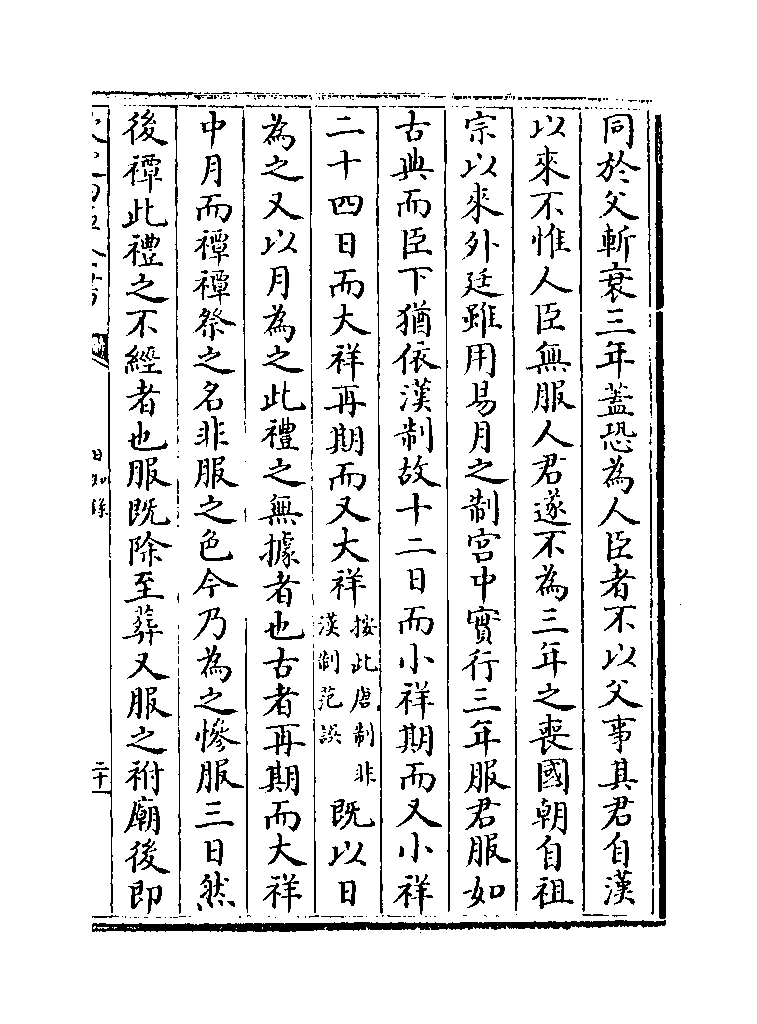 同於父斬衰三年蓋恐為人臣者不以父事其君自漢
以來不惟人臣無服人君遂不為三年之喪國朝自祖
宗以來外廷雖用易月之制宮中實行三年服君服如
古典而臣下猶依漢制故十二日而小祥期而又小祥
二十四日而大祥再期而又大祥按此唐制非漢制范誤既以日
為之又以月為之此禮之無據者也古者再期而大祥
中月而禫禫祭之名非服之色今乃為之慘服三日然
後禫此禮之不經者也服既除至葬又服之祔廟後即
日知錄
二十